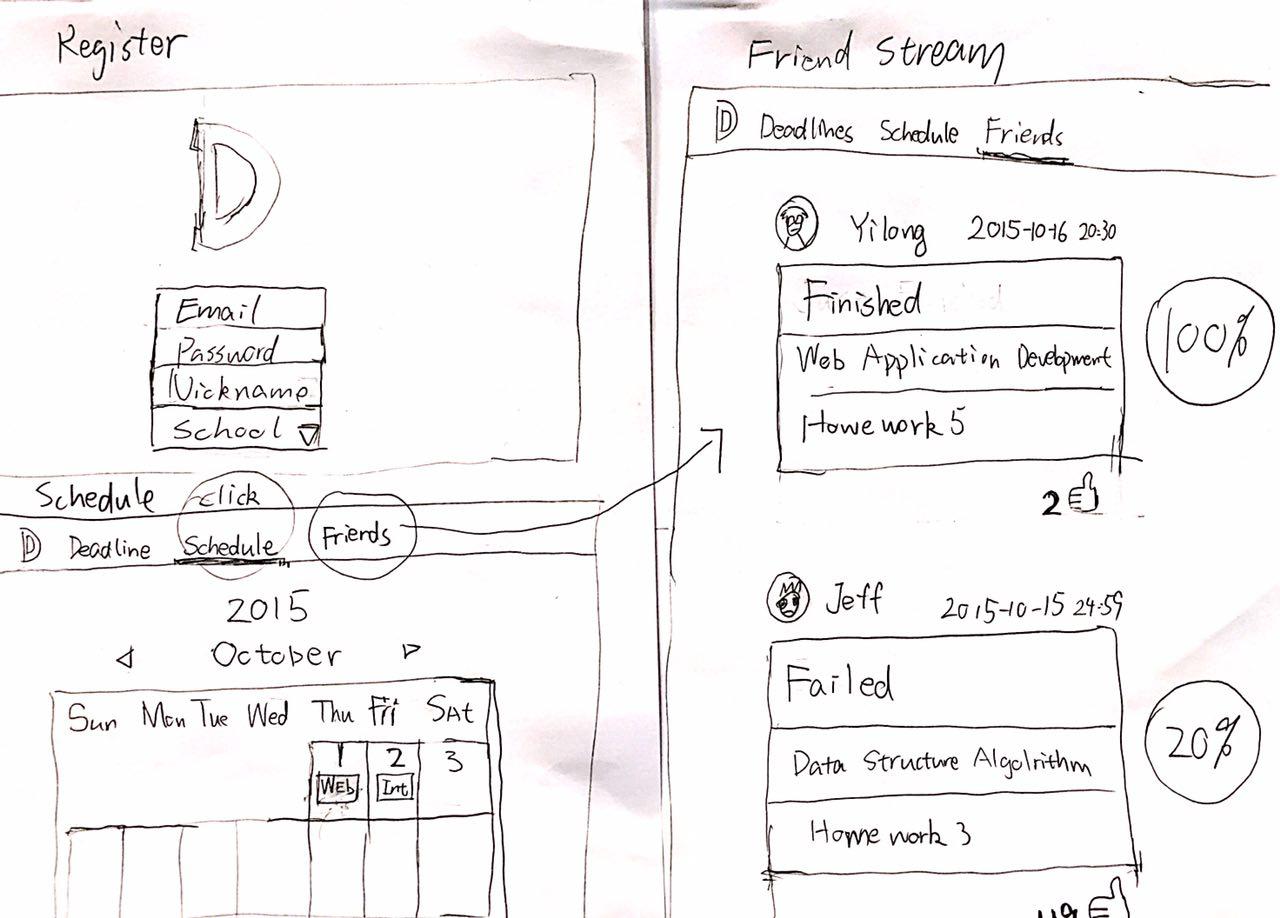 Register
D
Email
Password
Nickname
School
Schedule click
D Deadline Schedule Friends
2015
October
Sun Mon Tue Wed Thu Fri SAT
1 2 3
WEb Int
Friend Stream
D Deadlines Schedule Friends
Yilong 2015-10-16 20:30
Finished
100%
Web Application Development
Homework 5
2
Jeff 2015-10-15 24:59
Failed
Data Structure Algolrithm
20%
Homework 3